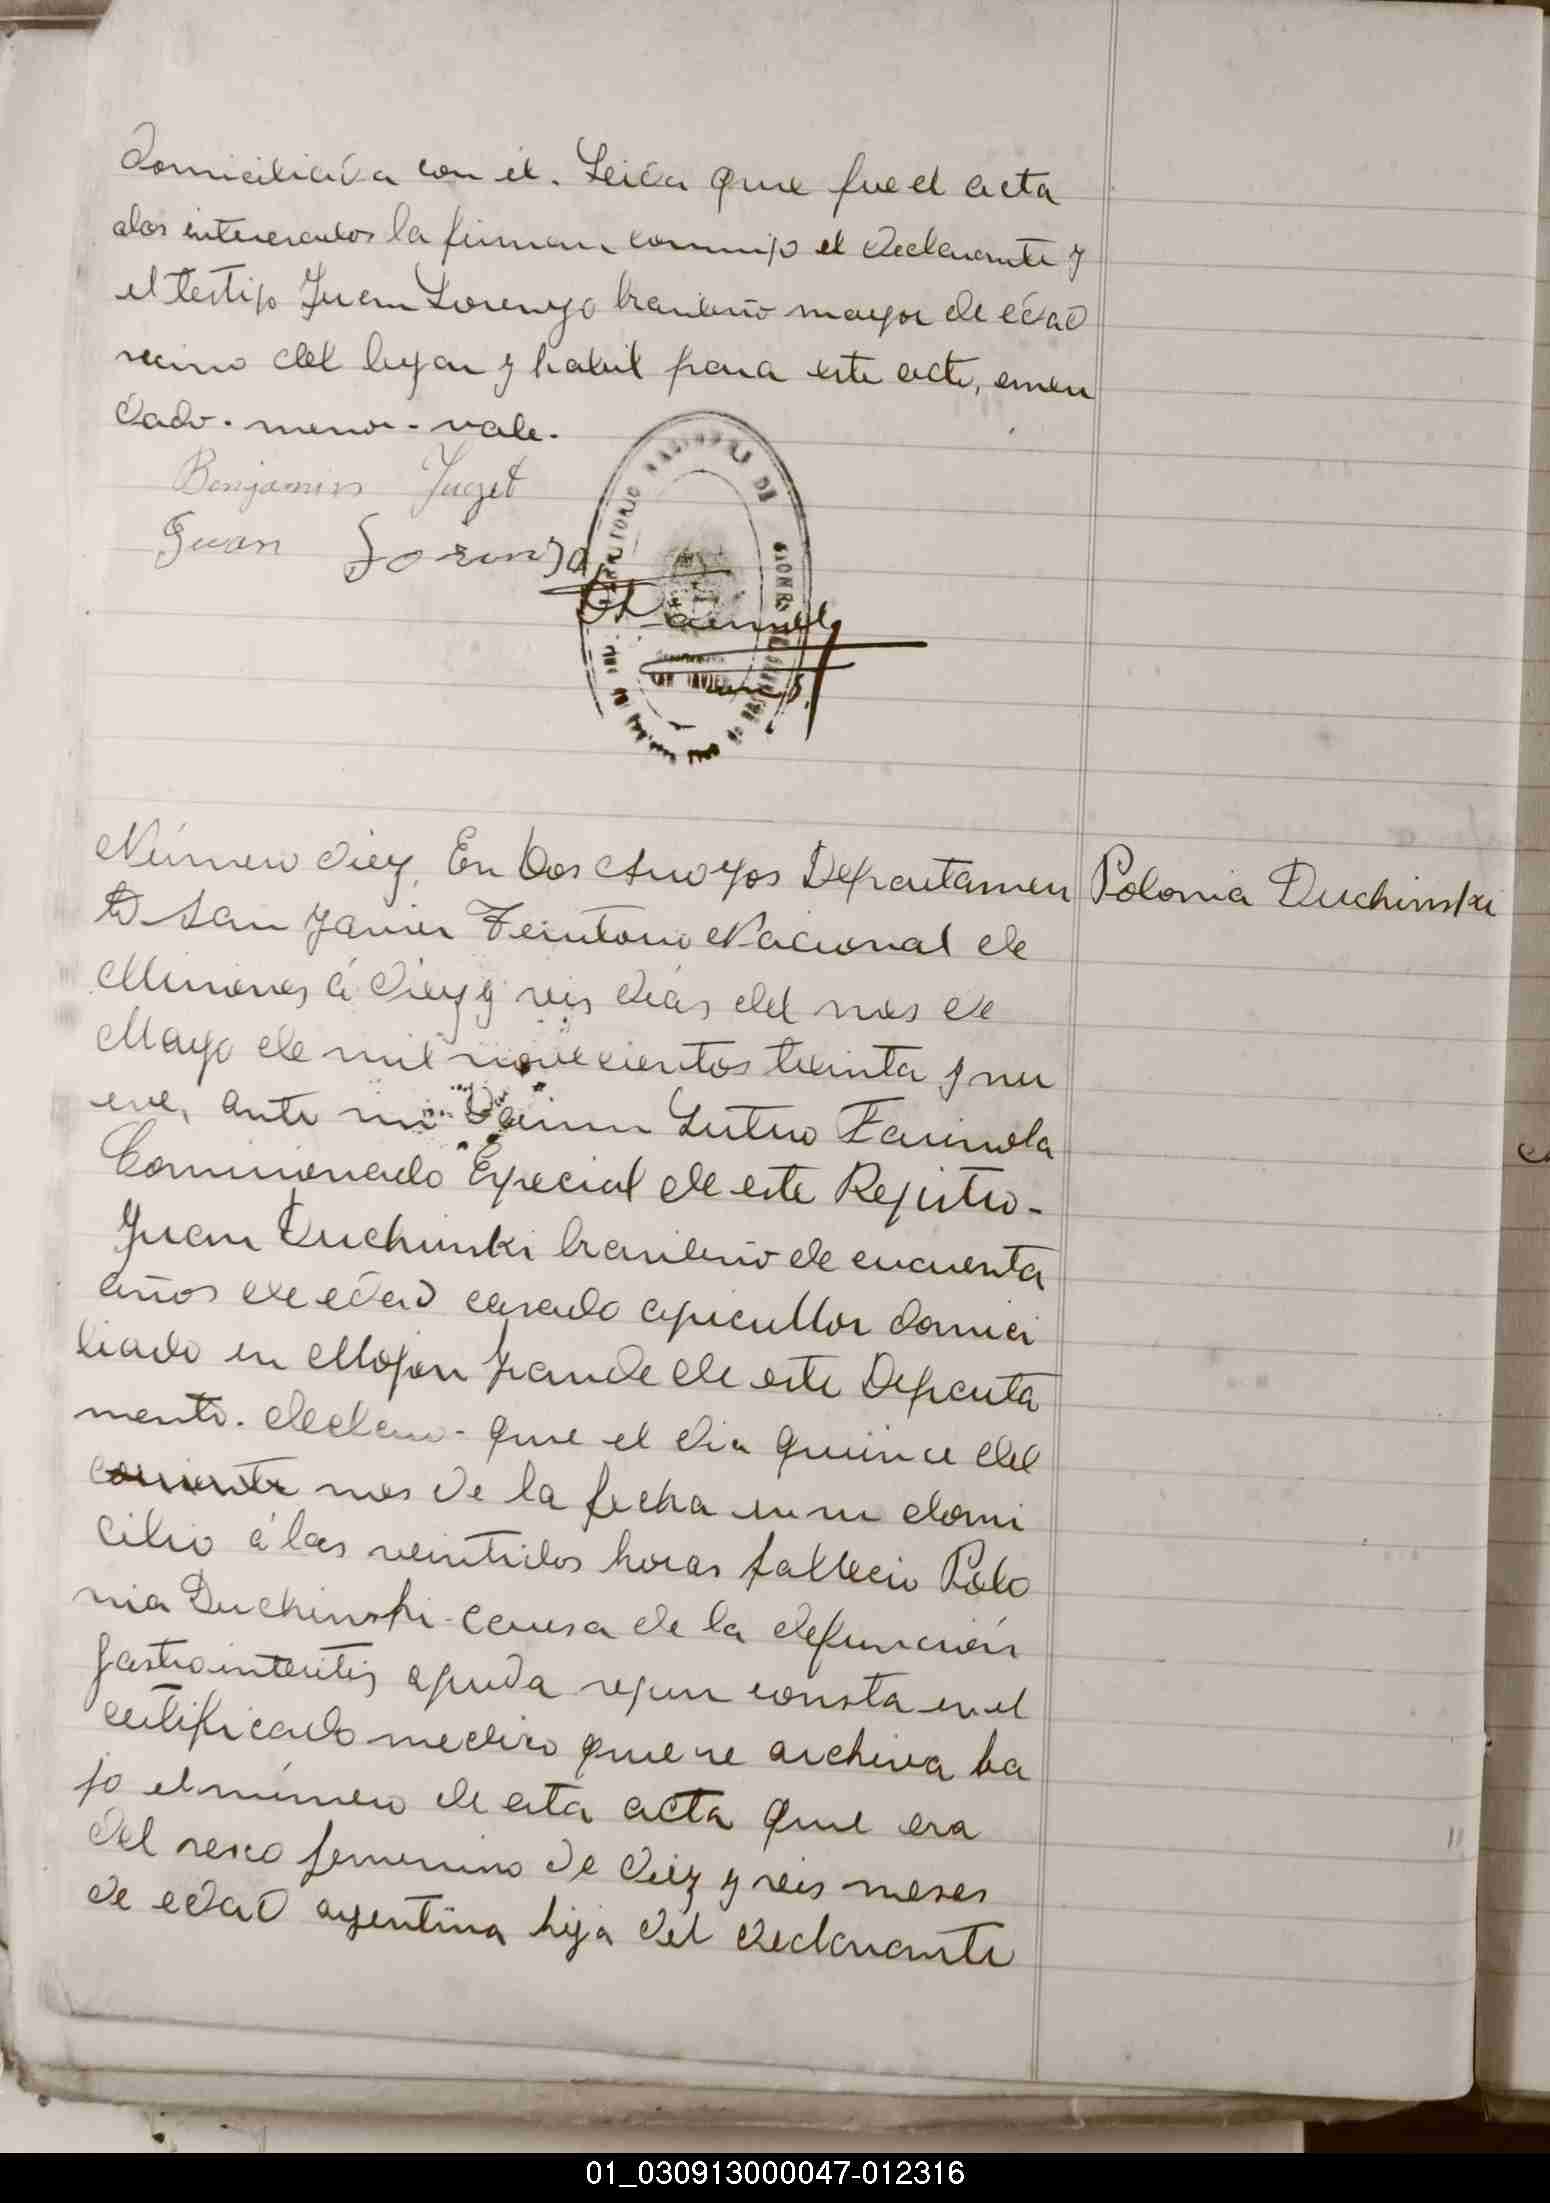 domiciliada con él. Leida que fue el acta
alos interesados la firman conmigo el declarante y
el testigo Juan Lorenzo brasileño mayor de edad
vecino del lugar y habil para este acto, emen
dado. menor. vale.
Benjamin
Juan Lorenzo
TERRITORIO NACIONAL DE MISIONES
SAN JAVIER
Número diez, En Dos Arroyos Departamen
to San Javier Territorio Nacional de
Misiones á diez y seis días del mes de
Mayo de mil novecientos treinta y nu
eve, ante mi Farinola
Comisionado Especial de este Registro-
Juan Duchinski brasileño de cincuenta
años de edad casado agricultor domici
liado en Mojon Grande de este Departa
mento. declaro. que el dia quince del
corriente mes de la fecha en su domi
cilio á las veintidos horas fallecio Polo
nia Duchinski. causa de la defunción
gastrointeritis aguda segun consta en el
certificado medico que se archiva ba
jo el número de esta acta que era
del sexo femenino de diez y seis meses
de edad argentina hija del declarante
Polonia Duchinski
01_030913000047-012316